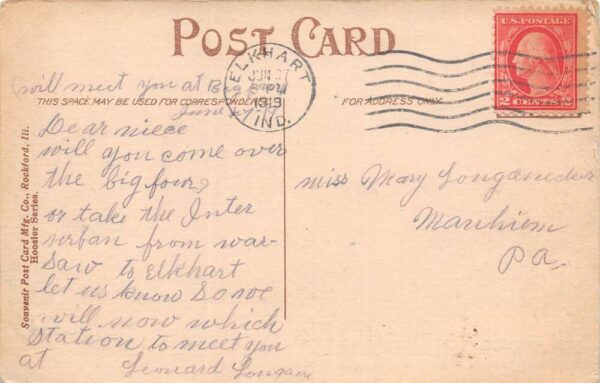 POST CARD
ELKHART
JUN 27
PM
1919
IND.
U.S. POSTAGE
2 CENTS 2
will meet you at Big
THIS SPACE MAY BE USED FOR CORRESPONDENCE
FOR ADDRESS ONLY.
June
Dear niece
will you come over
the big four,
or take the Inter
urban from war-
saw to Elkhart
let us know So we
will now which
Station to meet you
at Leonard
Miss Mary Longanecker
Manhiem
Pa.
Souvenir Post Card Mfg. Co., Rockford, Ill.
Hoosier Series.